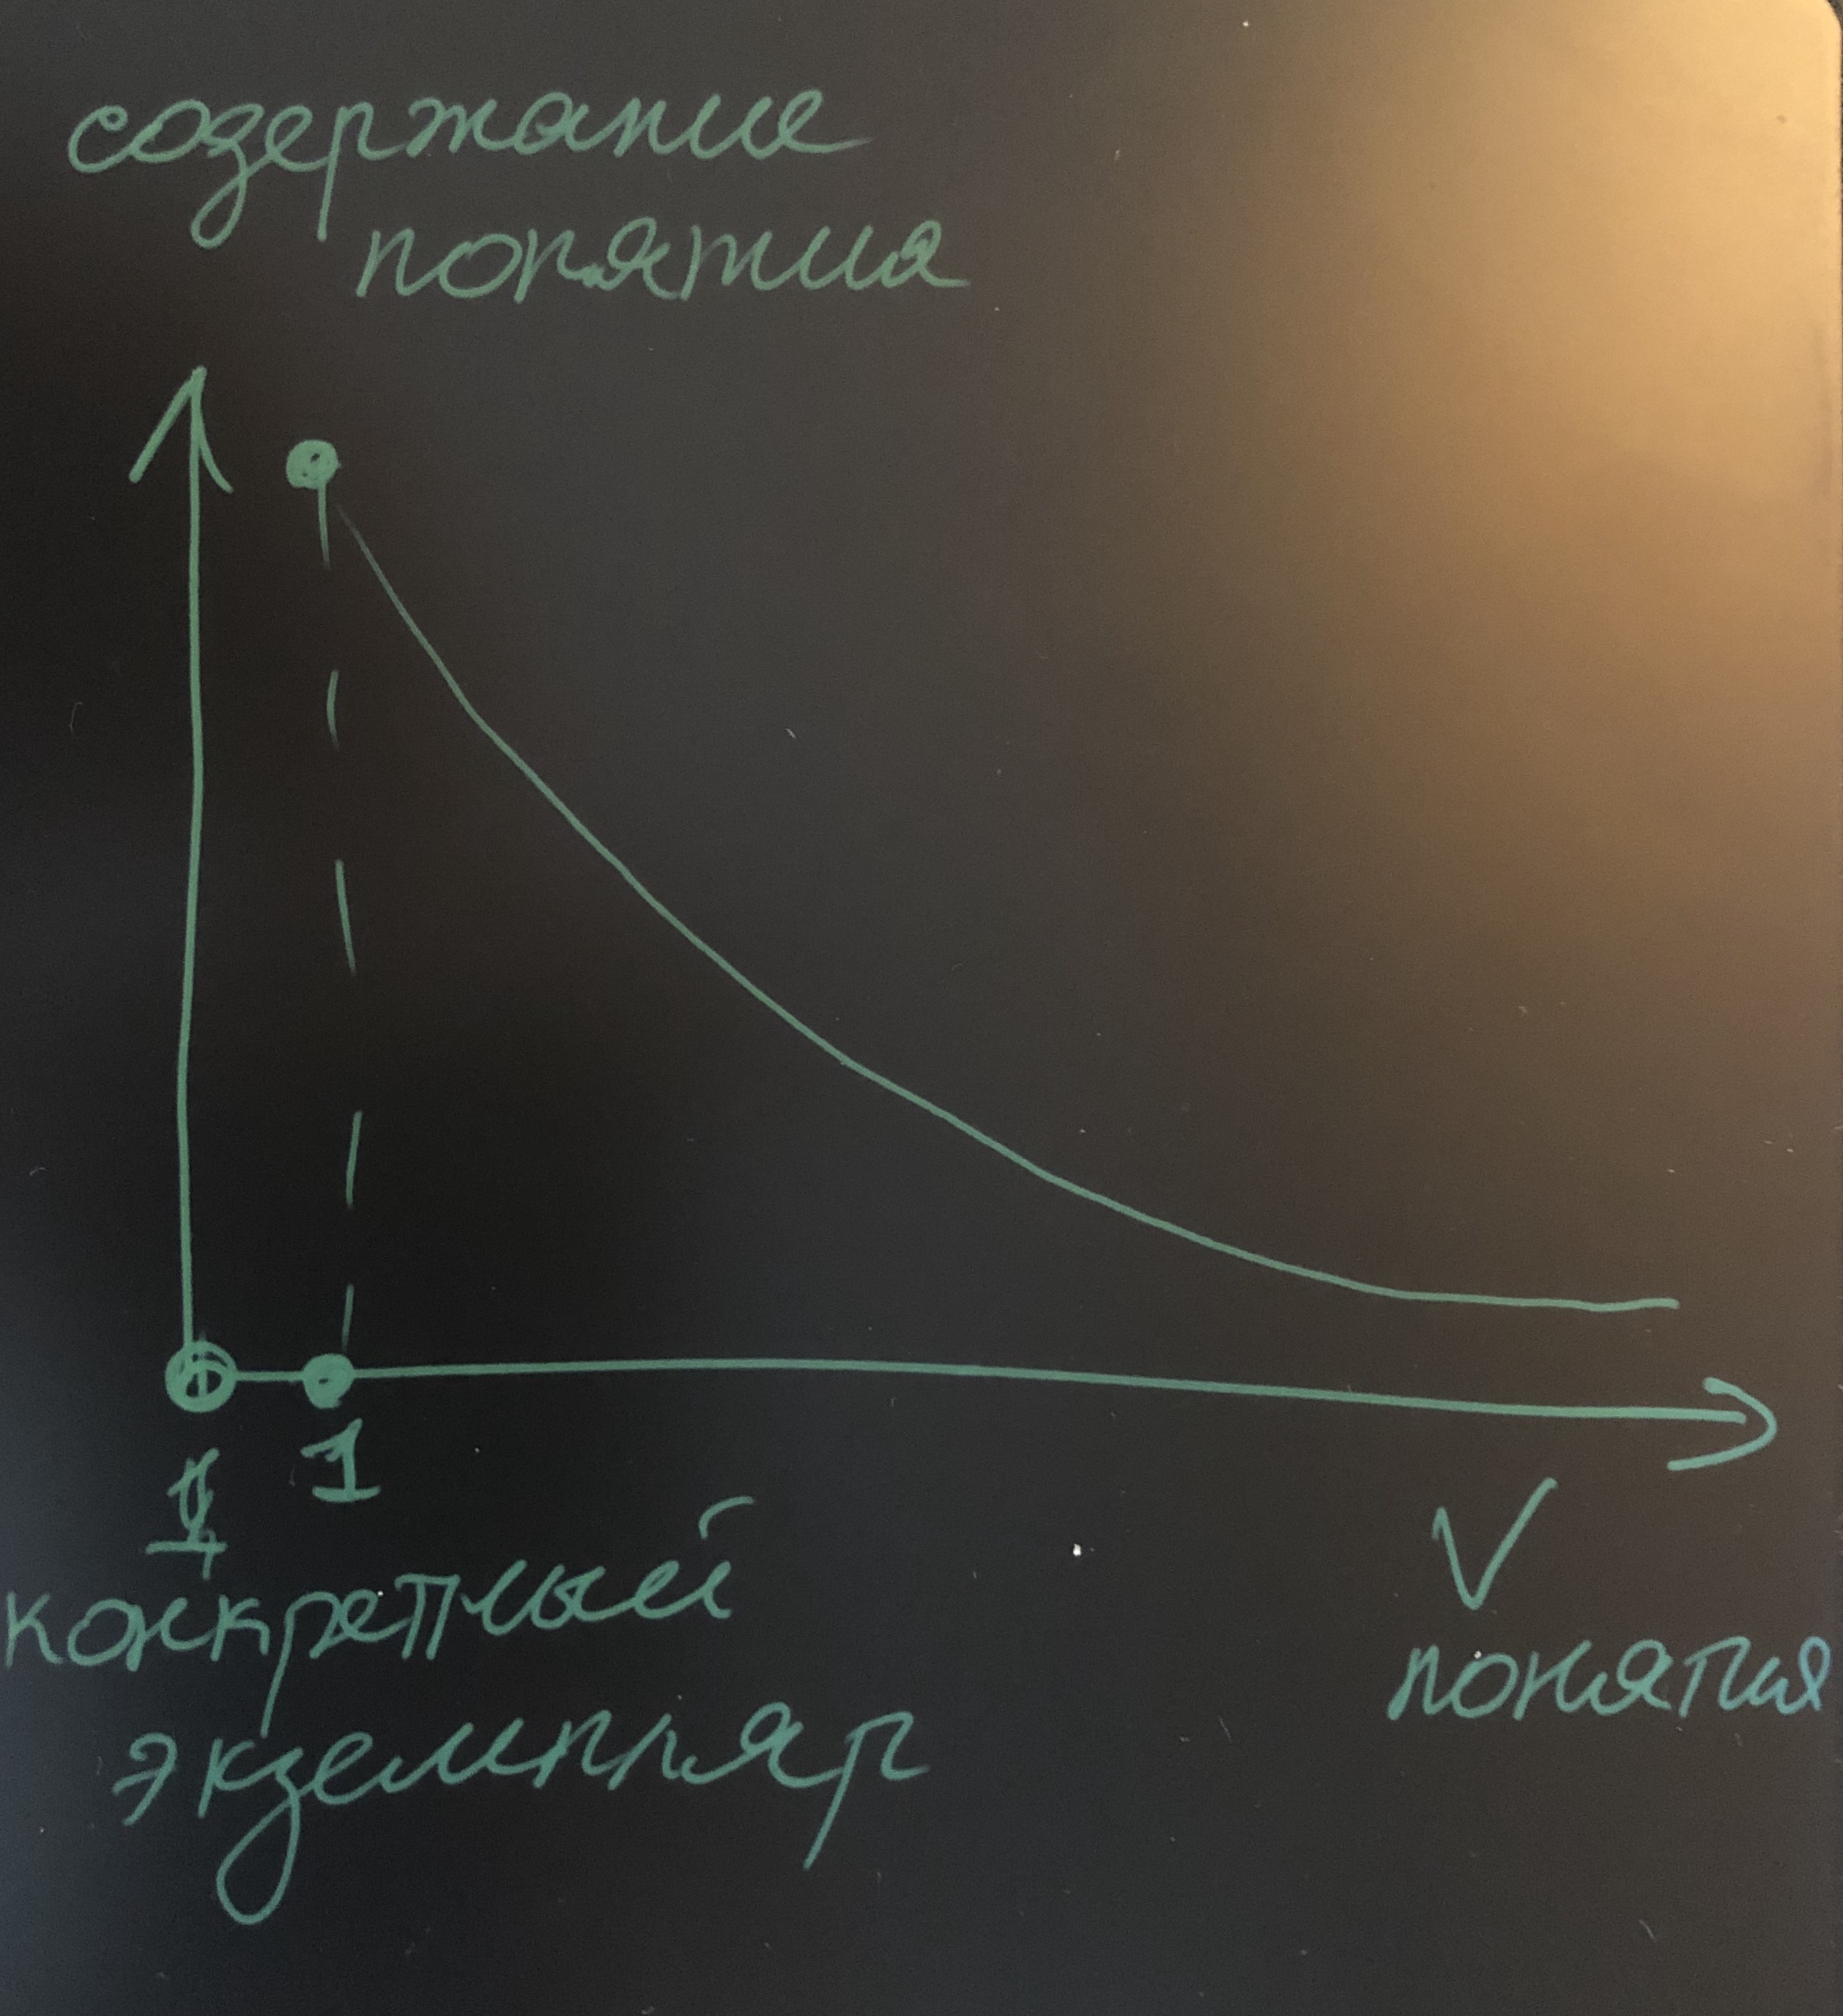 содержание
понятия
1
конкретный
экземпляр
V
понятия